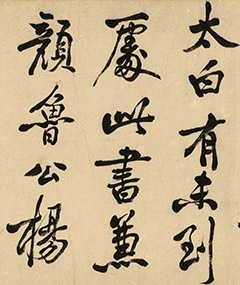 太白有未到
處此書兼
顏魯公楊